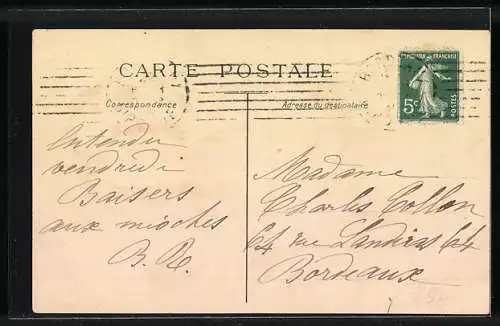 CARTE POSTALE
Correspondance
Adresse du destinataire
REPUBLIQUE FRANÇAISE
5c
POSTES
Entendu
vendredi
Baisers
aux mioches
B. R.
Madame
Charles Collon
64 rue Landiras 64
Bordeaux